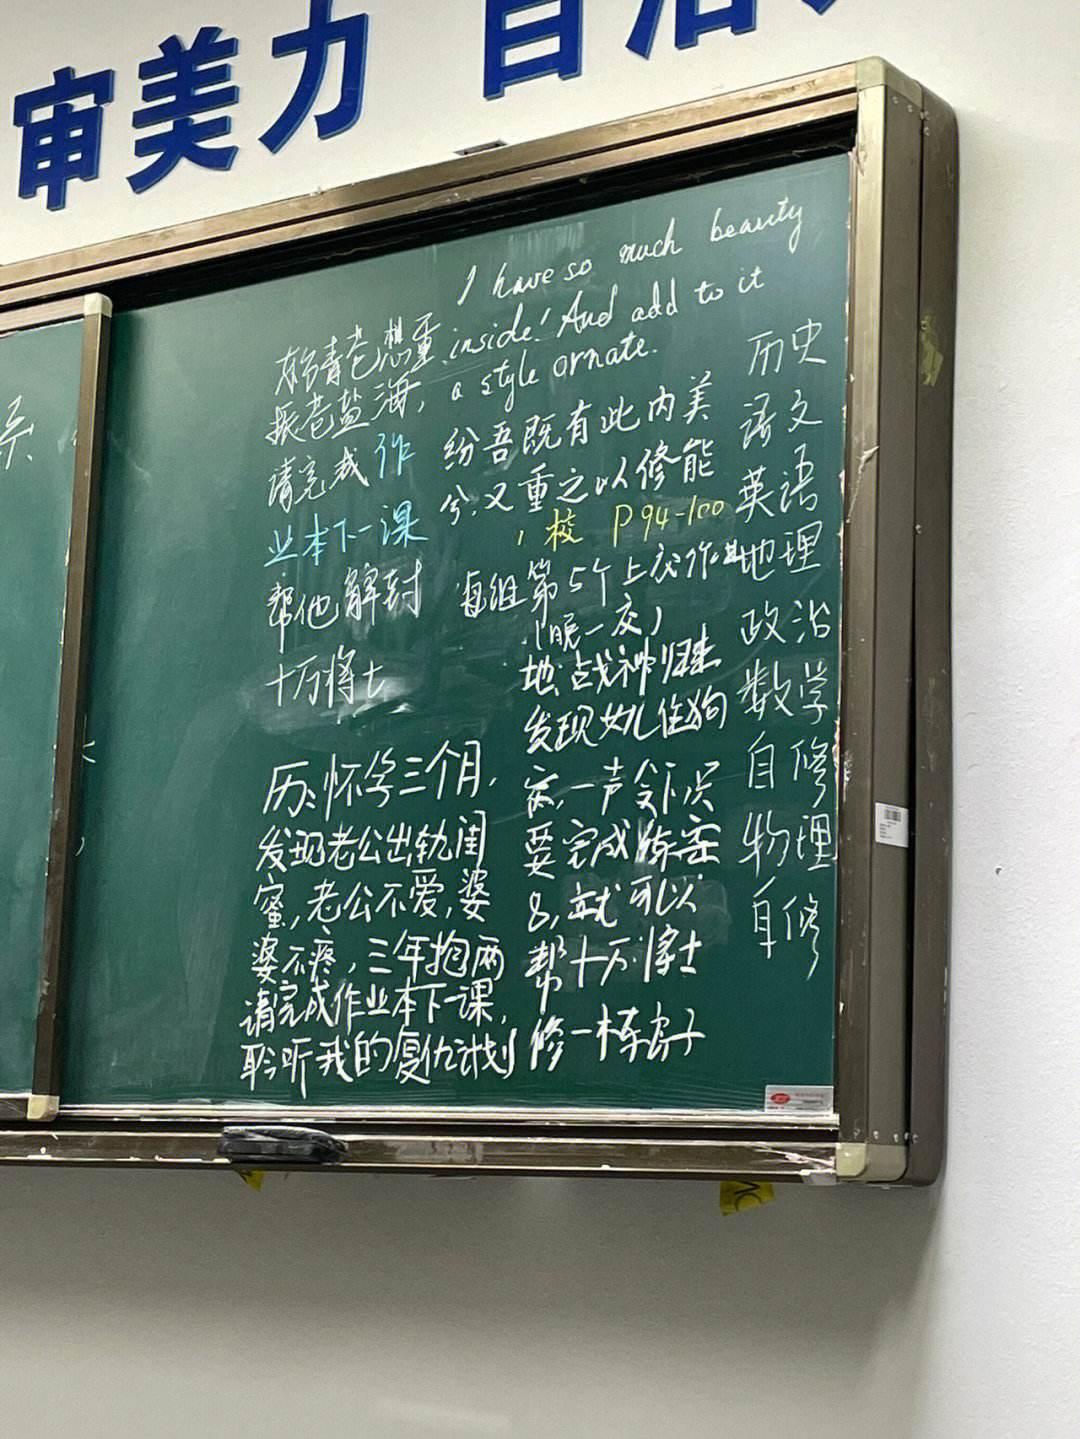 审美力 自治
I have so much beauty
inside! And add to it
a style ornate.
纷吾既有此内美
兮,又重之以修能
,校 P94-100
每组第5个上交作业
(晚一交)
政:秦始皇老想重
振老盐海,
请完成作
业本下一课
帮他解封
十万将士
历:怀孕三个月,
发现老公出轨闺
蜜,老公不爱,婆
婆不疼,三年抱两
请完成作业本下一课,
聆听我的复仇计划
地:战神归来
发现女儿住狗
窝,一声令下只
要完成练案
8,就可以
帮十万将士
修一栋房子
历史
语文
英语
地理
政治
数学
自修
物理
自修